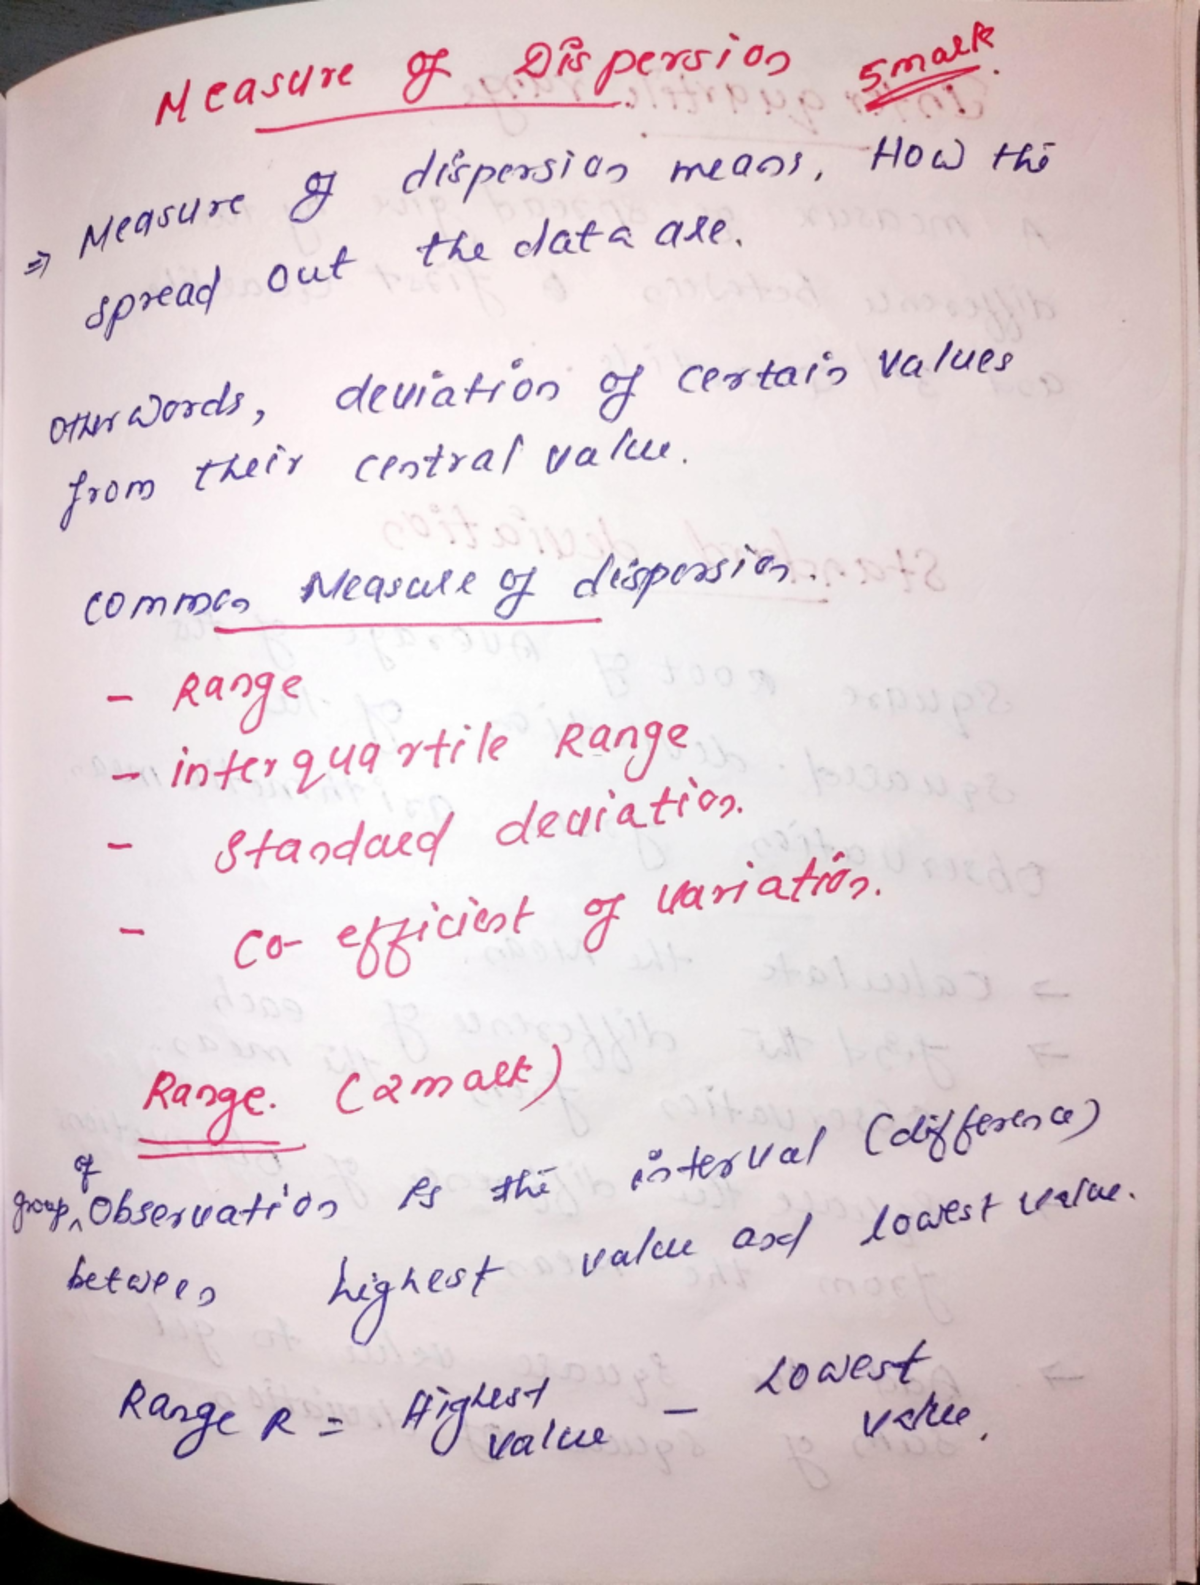 Measure of Dispersion 5 mark.
⇒ Measure of dispersion means, How the
spread out the data are.
Other words, deviation of certain values
from their central value.
Common Measure of dispersion.
- Range
- interquartile Range
- Standard deviation.
- Co-efficient of variation.
Range. (2 mark)
group of Observation is the interval (difference)
between highest value and lowest value.
Range R = Highest value - Lowest value.